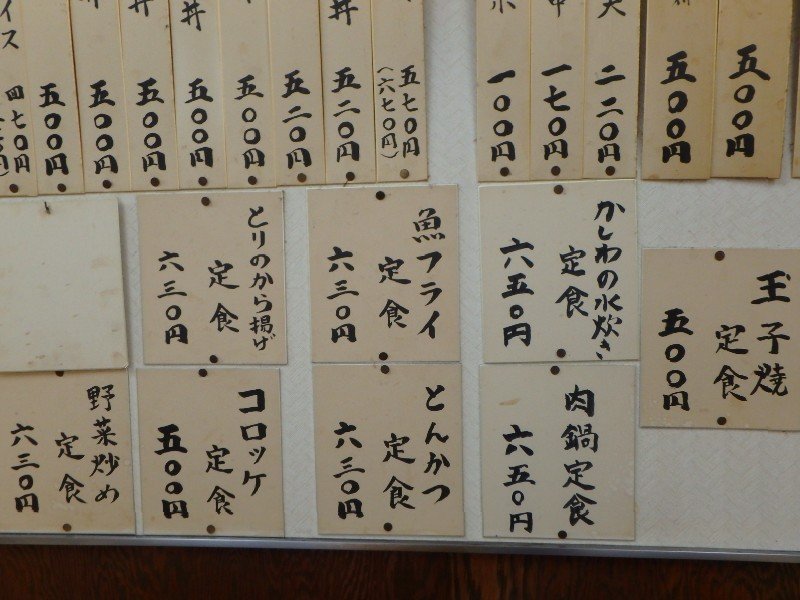 五〇〇円
五〇〇円
大 二二〇円
中 一七〇円
小 一〇〇円
五七〇円
(六七〇円)
丼 五二〇円
五二〇円
五〇〇円
丼 五〇〇円
丼 五〇〇円
五〇〇円
五〇〇円
イス 四七〇円
玉子焼
定食
五〇〇円
かしわの水炊き
定食
六五〇円
魚フライ
定食
六三〇円
とりのから揚げ
定食
六三〇円
肉鍋定食
六五〇円
とんかつ
定食
六三〇円
コロッケ
定食
五〇〇円
野菜炒め
定食
六三〇円